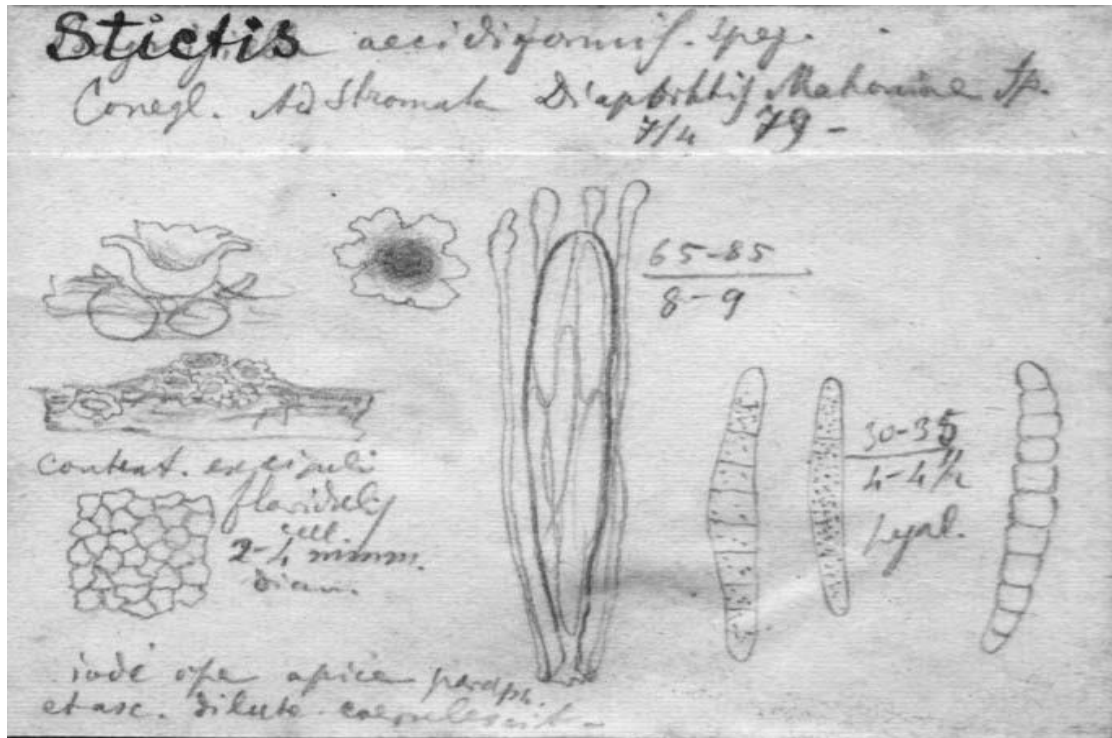 Stictis aecidiiformis. Speg.
Conegl. Ad stromata Diaporthis Mahoniae Sp.
7/4 79 -
65-85
8-9
30-35
4-4½
hyal.
context. excipuli
flavidulis
cell.
2-4 mmm.
diam.
iodi ope apice paraph.
et asc. dilute coerulescit -